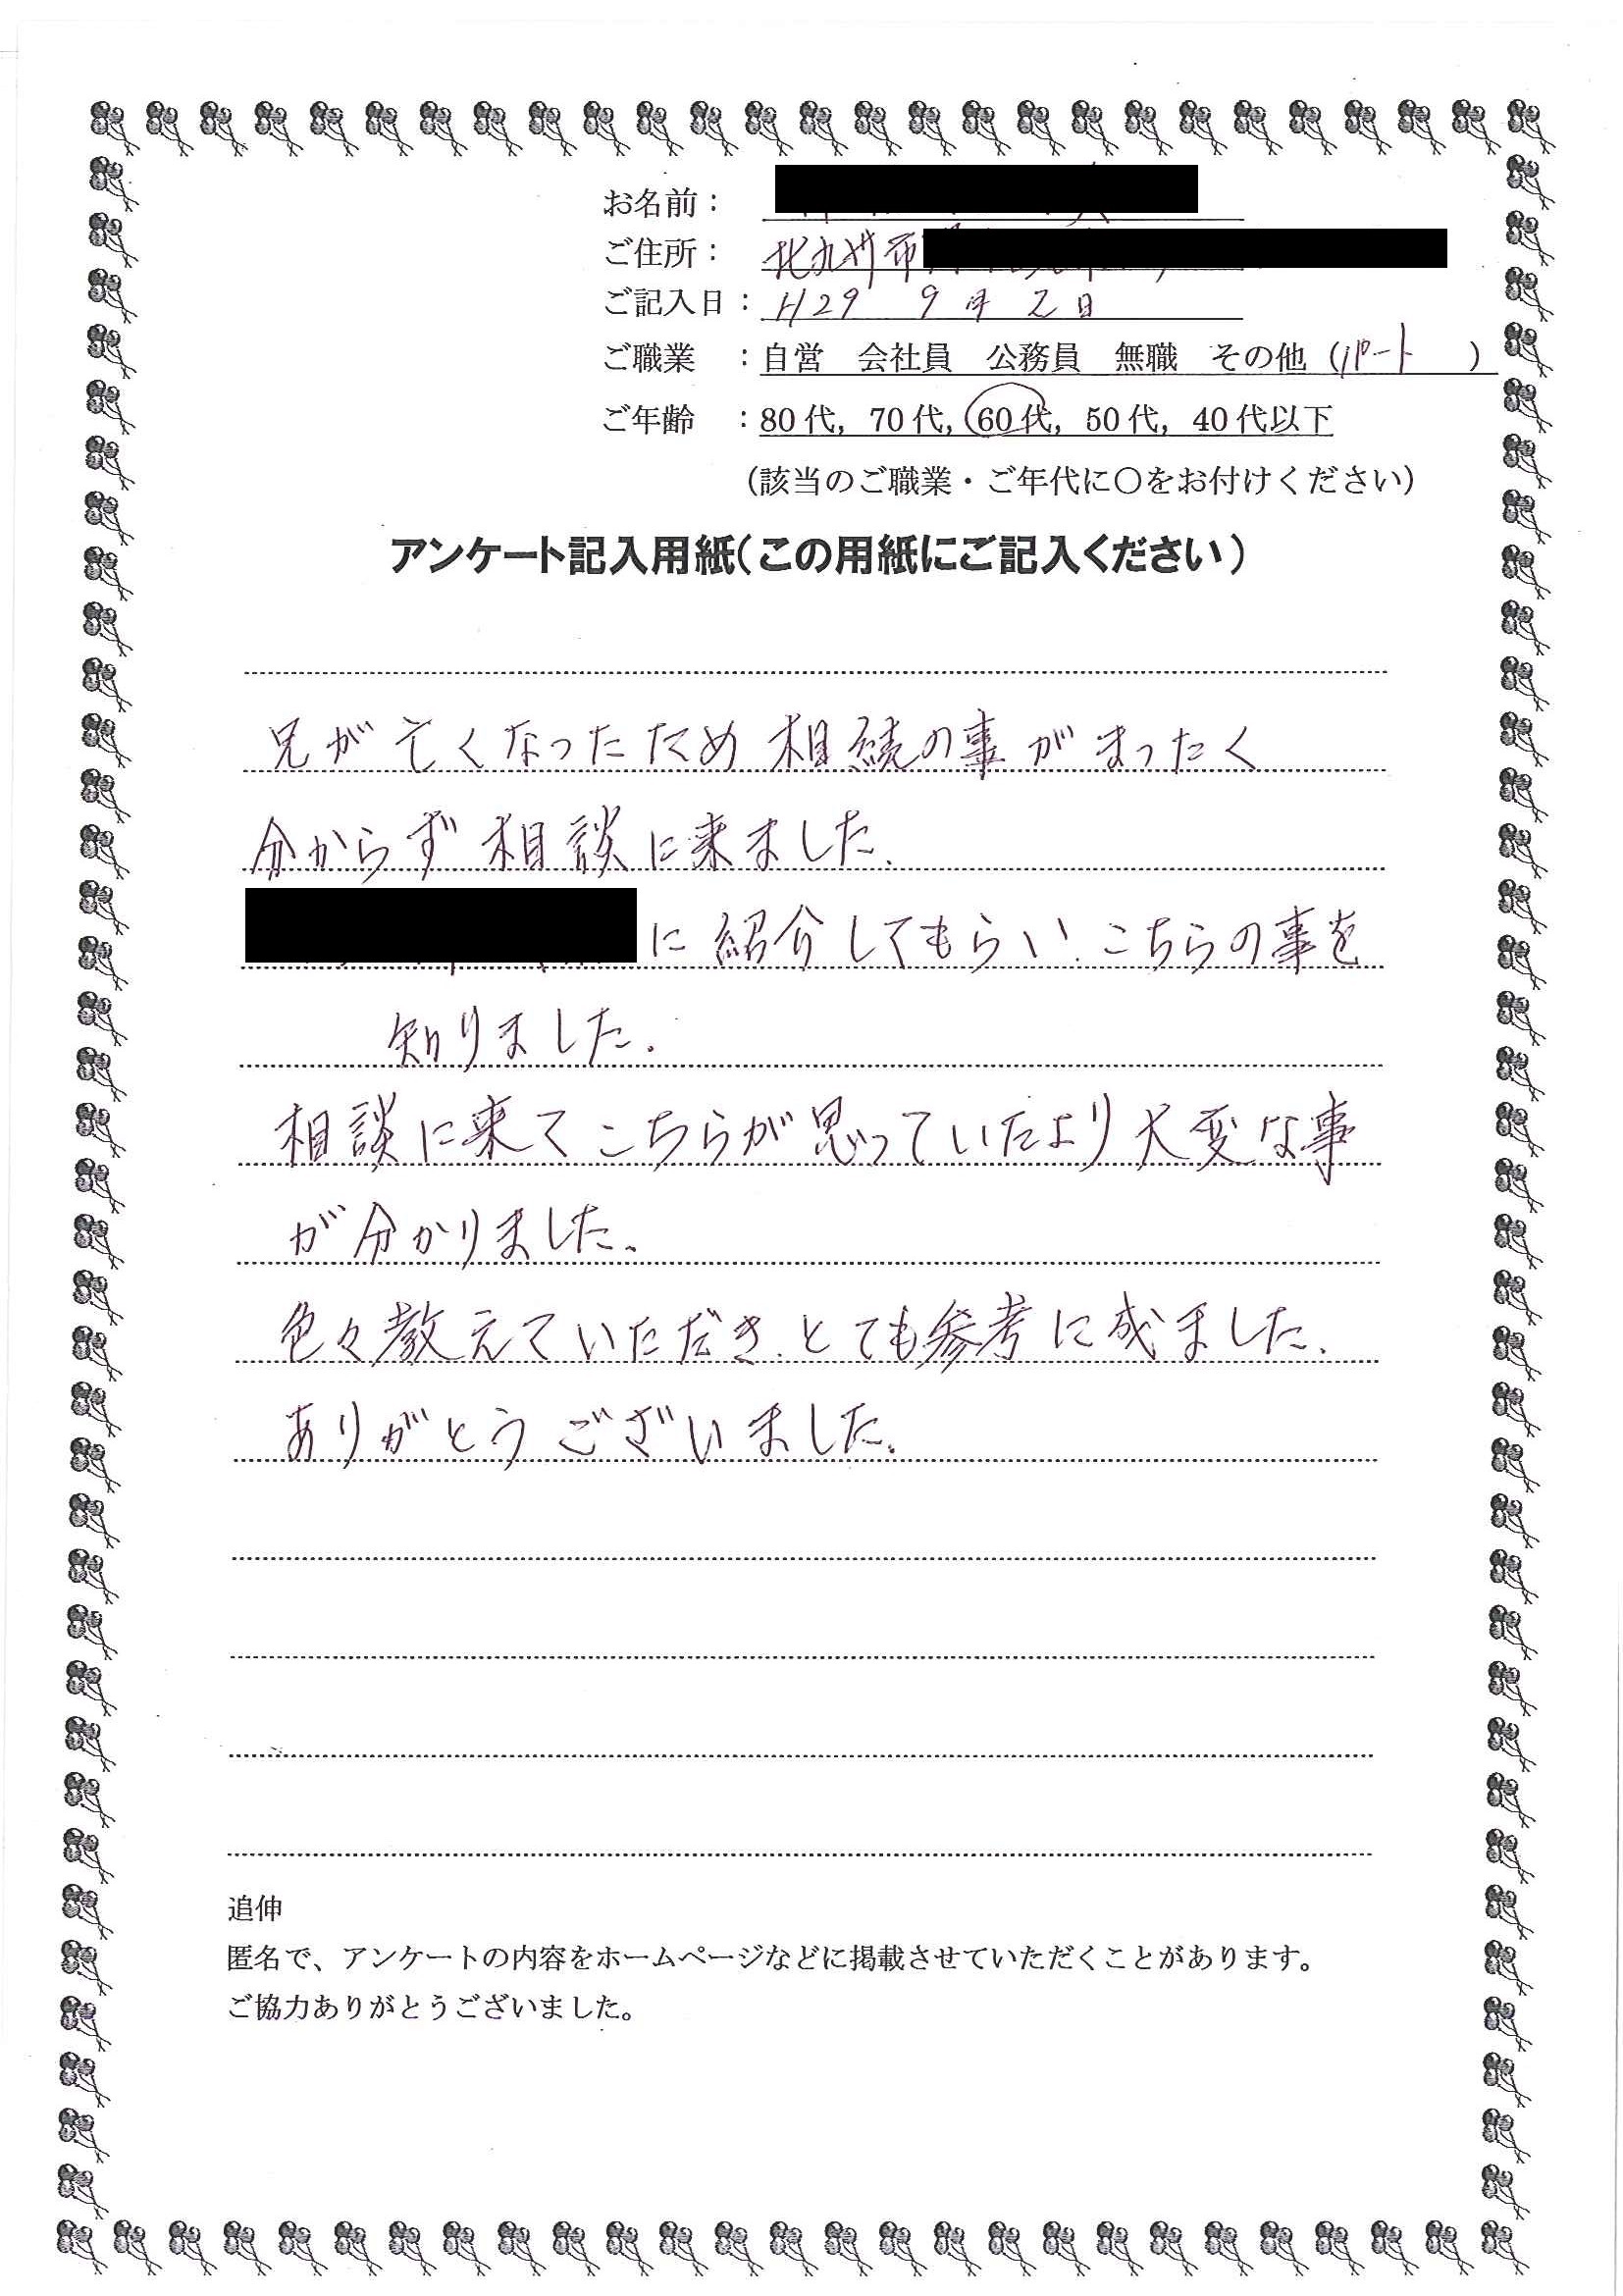 お名前：
ご住所： 北九州市
ご記入日： H29 9月2日
ご職業 ：自営 会社員 公務員 無職 その他（パート ）
ご年齢 ：80代，70代，60代，50代，40代以下
（該当のご職業・ご年代に〇をお付けください）
アンケート記入用紙（この用紙にご記入ください）
兄が亡くなったため相続の事がまったく
分からず相談に来ました.
に紹介してもらい.こちらの事を
知りました.
相談に来てこちらが思っていたより大変な事
が分かりました、
色々教えていただき.とても参考に成ました.
ありがとうございました.
追伸
匿名で、アンケートの内容をホームページなどに掲載させていただくことがあります。
ご協力ありがとうございました。